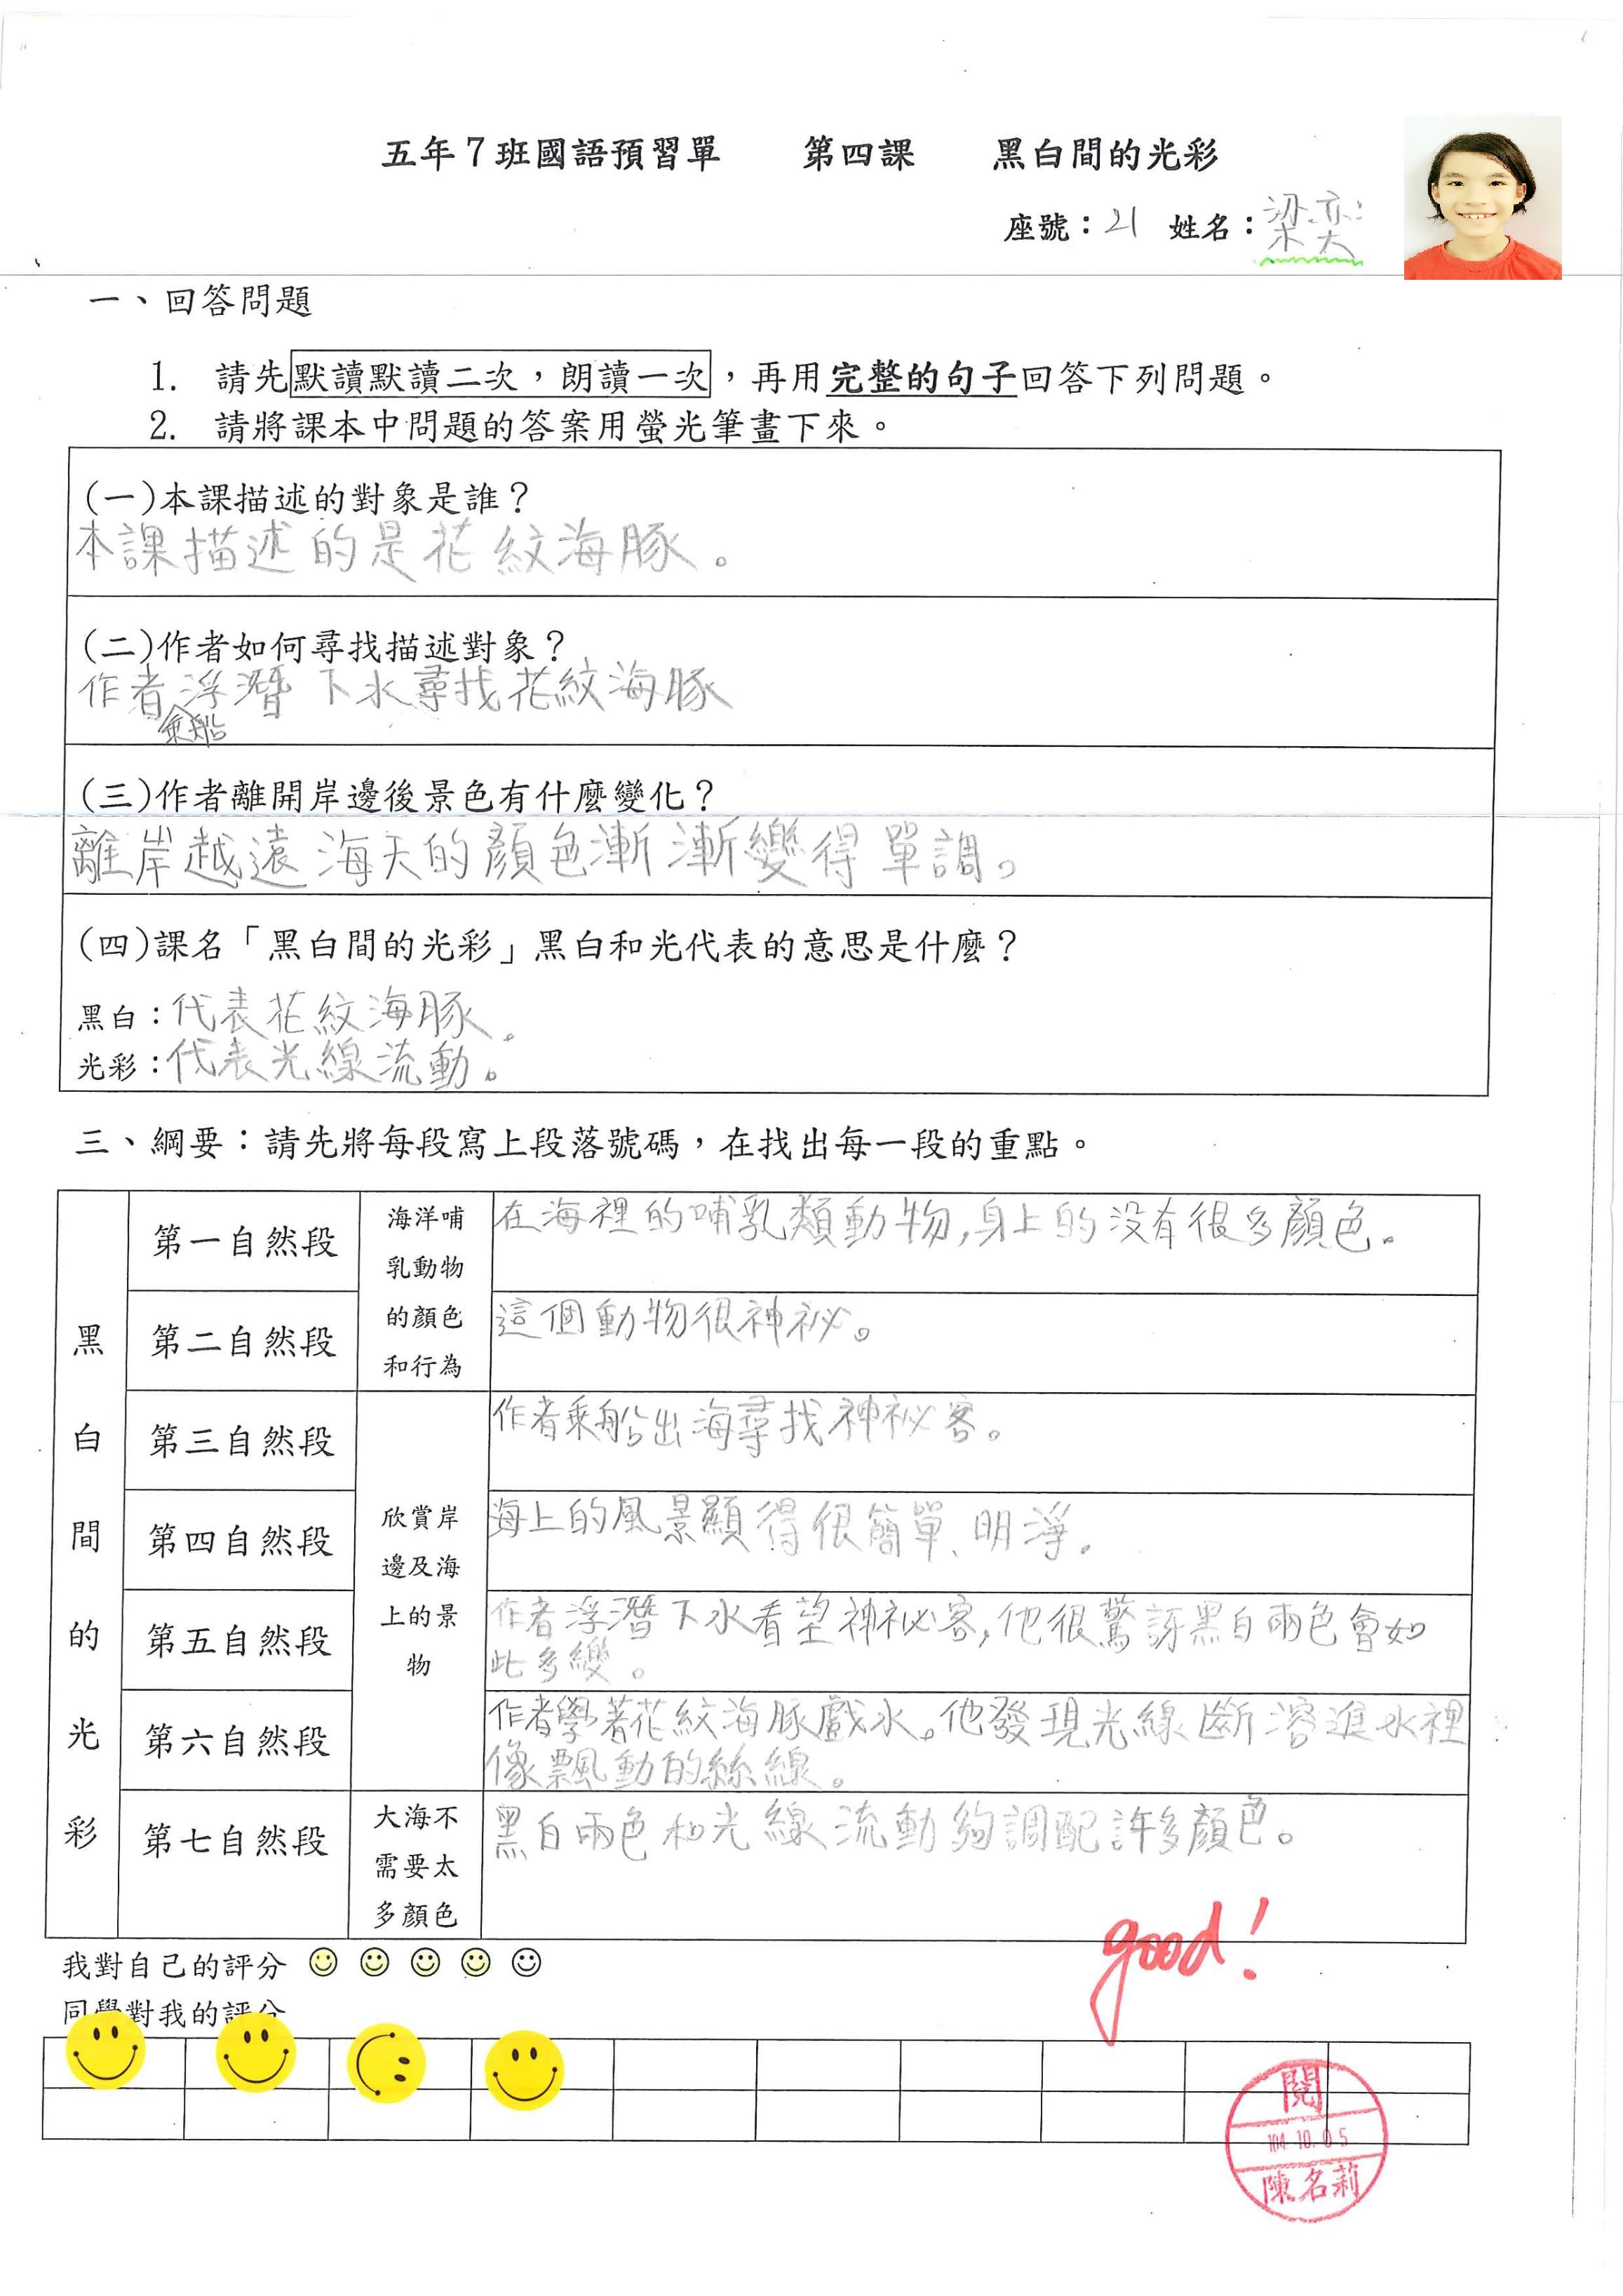 五年7班國語預習單 第四課 黑白間的光彩
座號：21 姓名：梁奕
一、回答問題
1. 請先默讀默讀二次，朗讀一次，再用完整的句子回答下列問題。
2. 請將課本中問題的答案用螢光筆畫下來。
(一)本課描述的對象是誰？
本課描述的是花紋海豚。
(二)作者如何尋找描述對象？
作者浮潛下水尋找花紋海豚
乘船
(三)作者離開岸邊後景色有什麼變化？
離岸越遠海天的顏色漸漸變得單調。
(四)課名「黑白間的光彩」黑白和光代表的意思是什麼？
黑白：代表花紋海豚。
光彩：代表光線流動。
三、綱要：請先將每段寫上段落號碼，在找出每一段的重點。
黑白間的光彩
第一自然段
海洋哺
乳動物
的顏色
和行為
在海裡的哺乳類動物，身上的没有很多顏色。
第二自然段
這個動物很神祕。
第三自然段
欣賞岸
邊及海
上的景
物
作者乘船出海尋找神祕客。
第四自然段
海上的風景顯得很簡單、明淨。
第五自然段
作者浮潛下水看望神祕客，他很驚訝黑白兩色會如
此多變。
第六自然段
作者學著花紋海豚戲水。他發現光線斷溶進水裡
像飄動的絲線。
第七自然段
大海不
需要太
多顏色
黑白兩色和光線流動夠調配許多顏色。
good!
我對自己的評分
同學對我的評分
閱
104.10.05
陳名莉